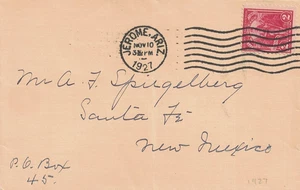 JEROME, ARIZ.
NOV 10
1927
Mr A. F. Spiegelberg
Santa Fé
New Mexico
P.O. Box
45.
1927